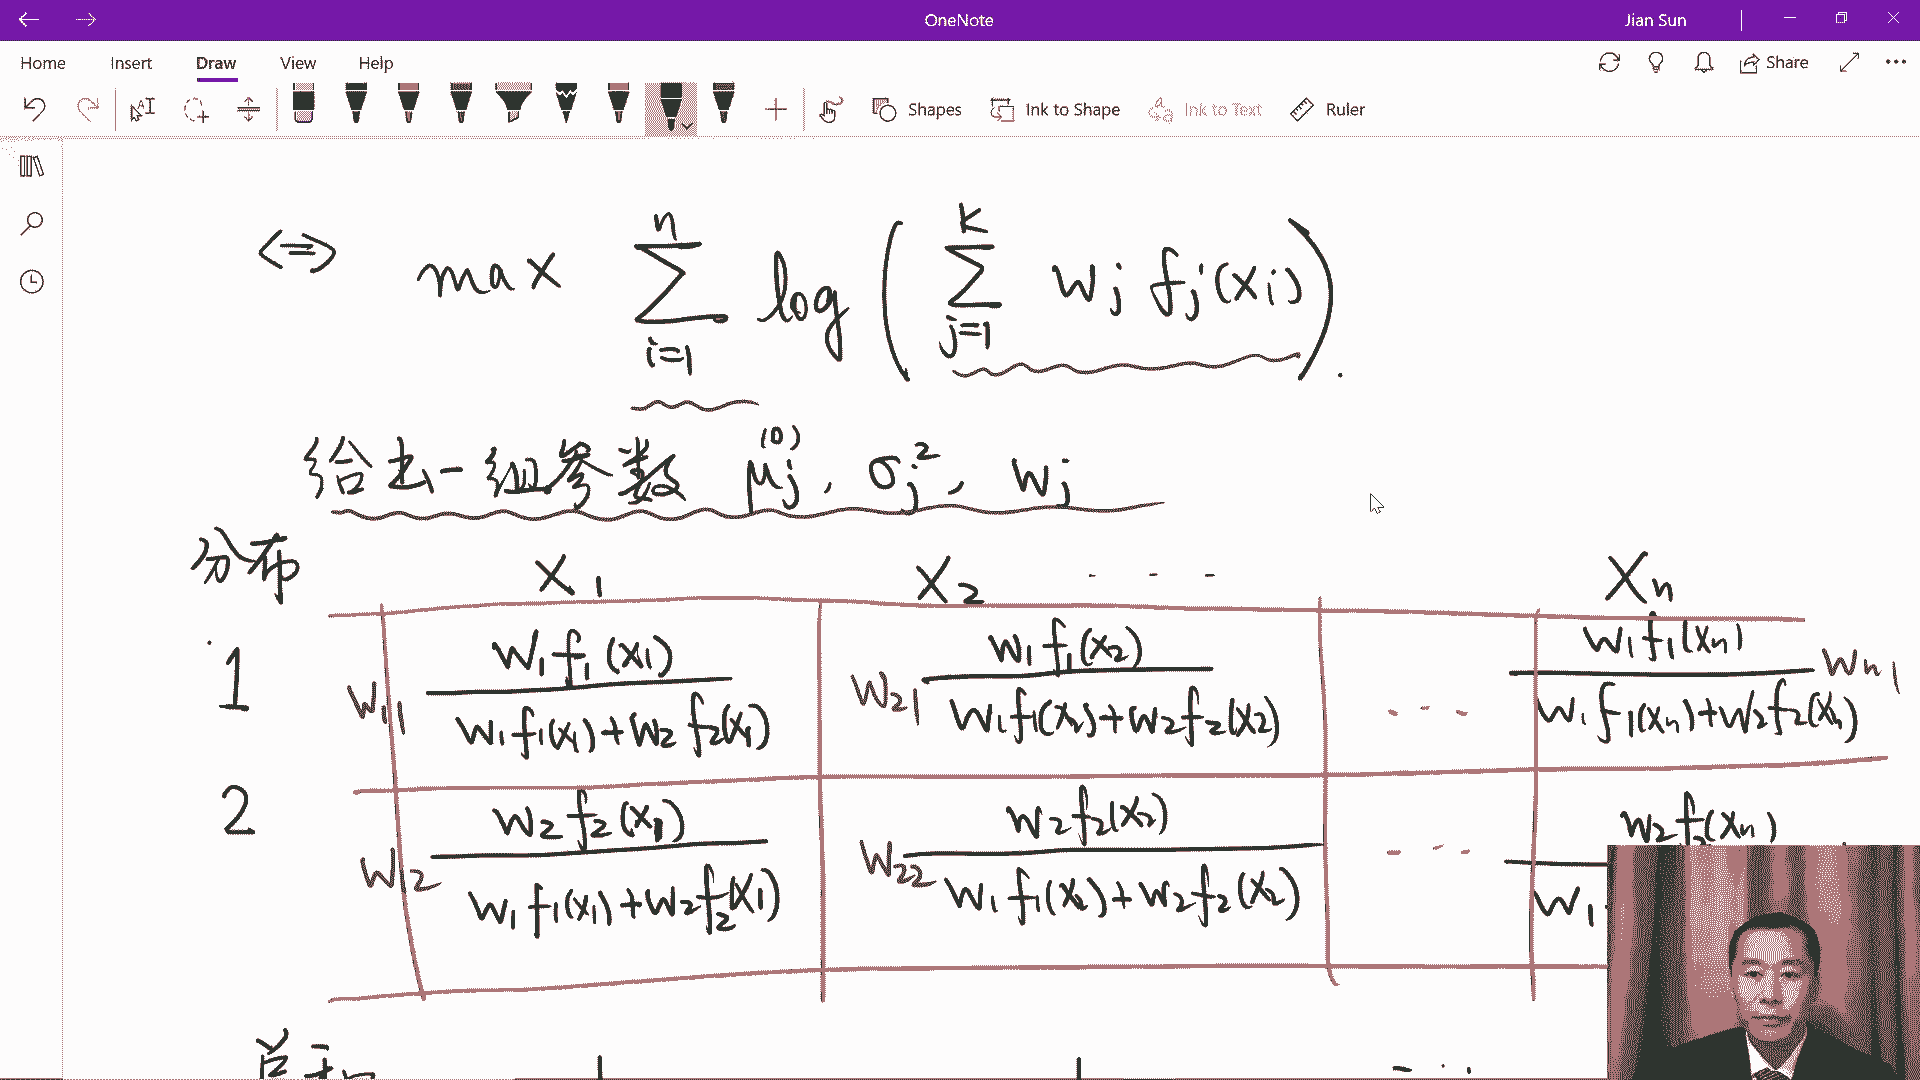 OneNote
Jian Sun
Home Insert Draw View Help
Share
Shapes Ink to Shape Ink to Text Ruler
⟺ max ∑_{i=1}^{n} log ( ∑_{j=1}^{K} w_j f_j(x_i) ) .
给去一组参数 μ_j^{(0)}, σ_j^2, w_j
分布 X_1 X_2 · · · X_n
1 w_{11} \frac{w_1 f_1(x_1)}{w_1 f_1(x_1)+w_2 f_2(x_1)} w_{21} \frac{w_1 f_1(x_2)}{w_1 f_1(x_2)+w_2 f_2(x_2)} · · · \frac{w_1 f_1(x_n)}{w_1 f_1(x_n)+w_2 f_2(x_n)} w_{n1}
2 w_{12} \frac{w_2 f_2(x_1)}{w_1 f_1(x_1)+w_2 f_2(x_1)} w_{22} \frac{w_2 f_2(x_2)}{w_1 f_1(x_2)+w_2 f_2(x_2)} · · · \frac{w_2 f_2(x_n)}{w_1}
1 1 · · ·